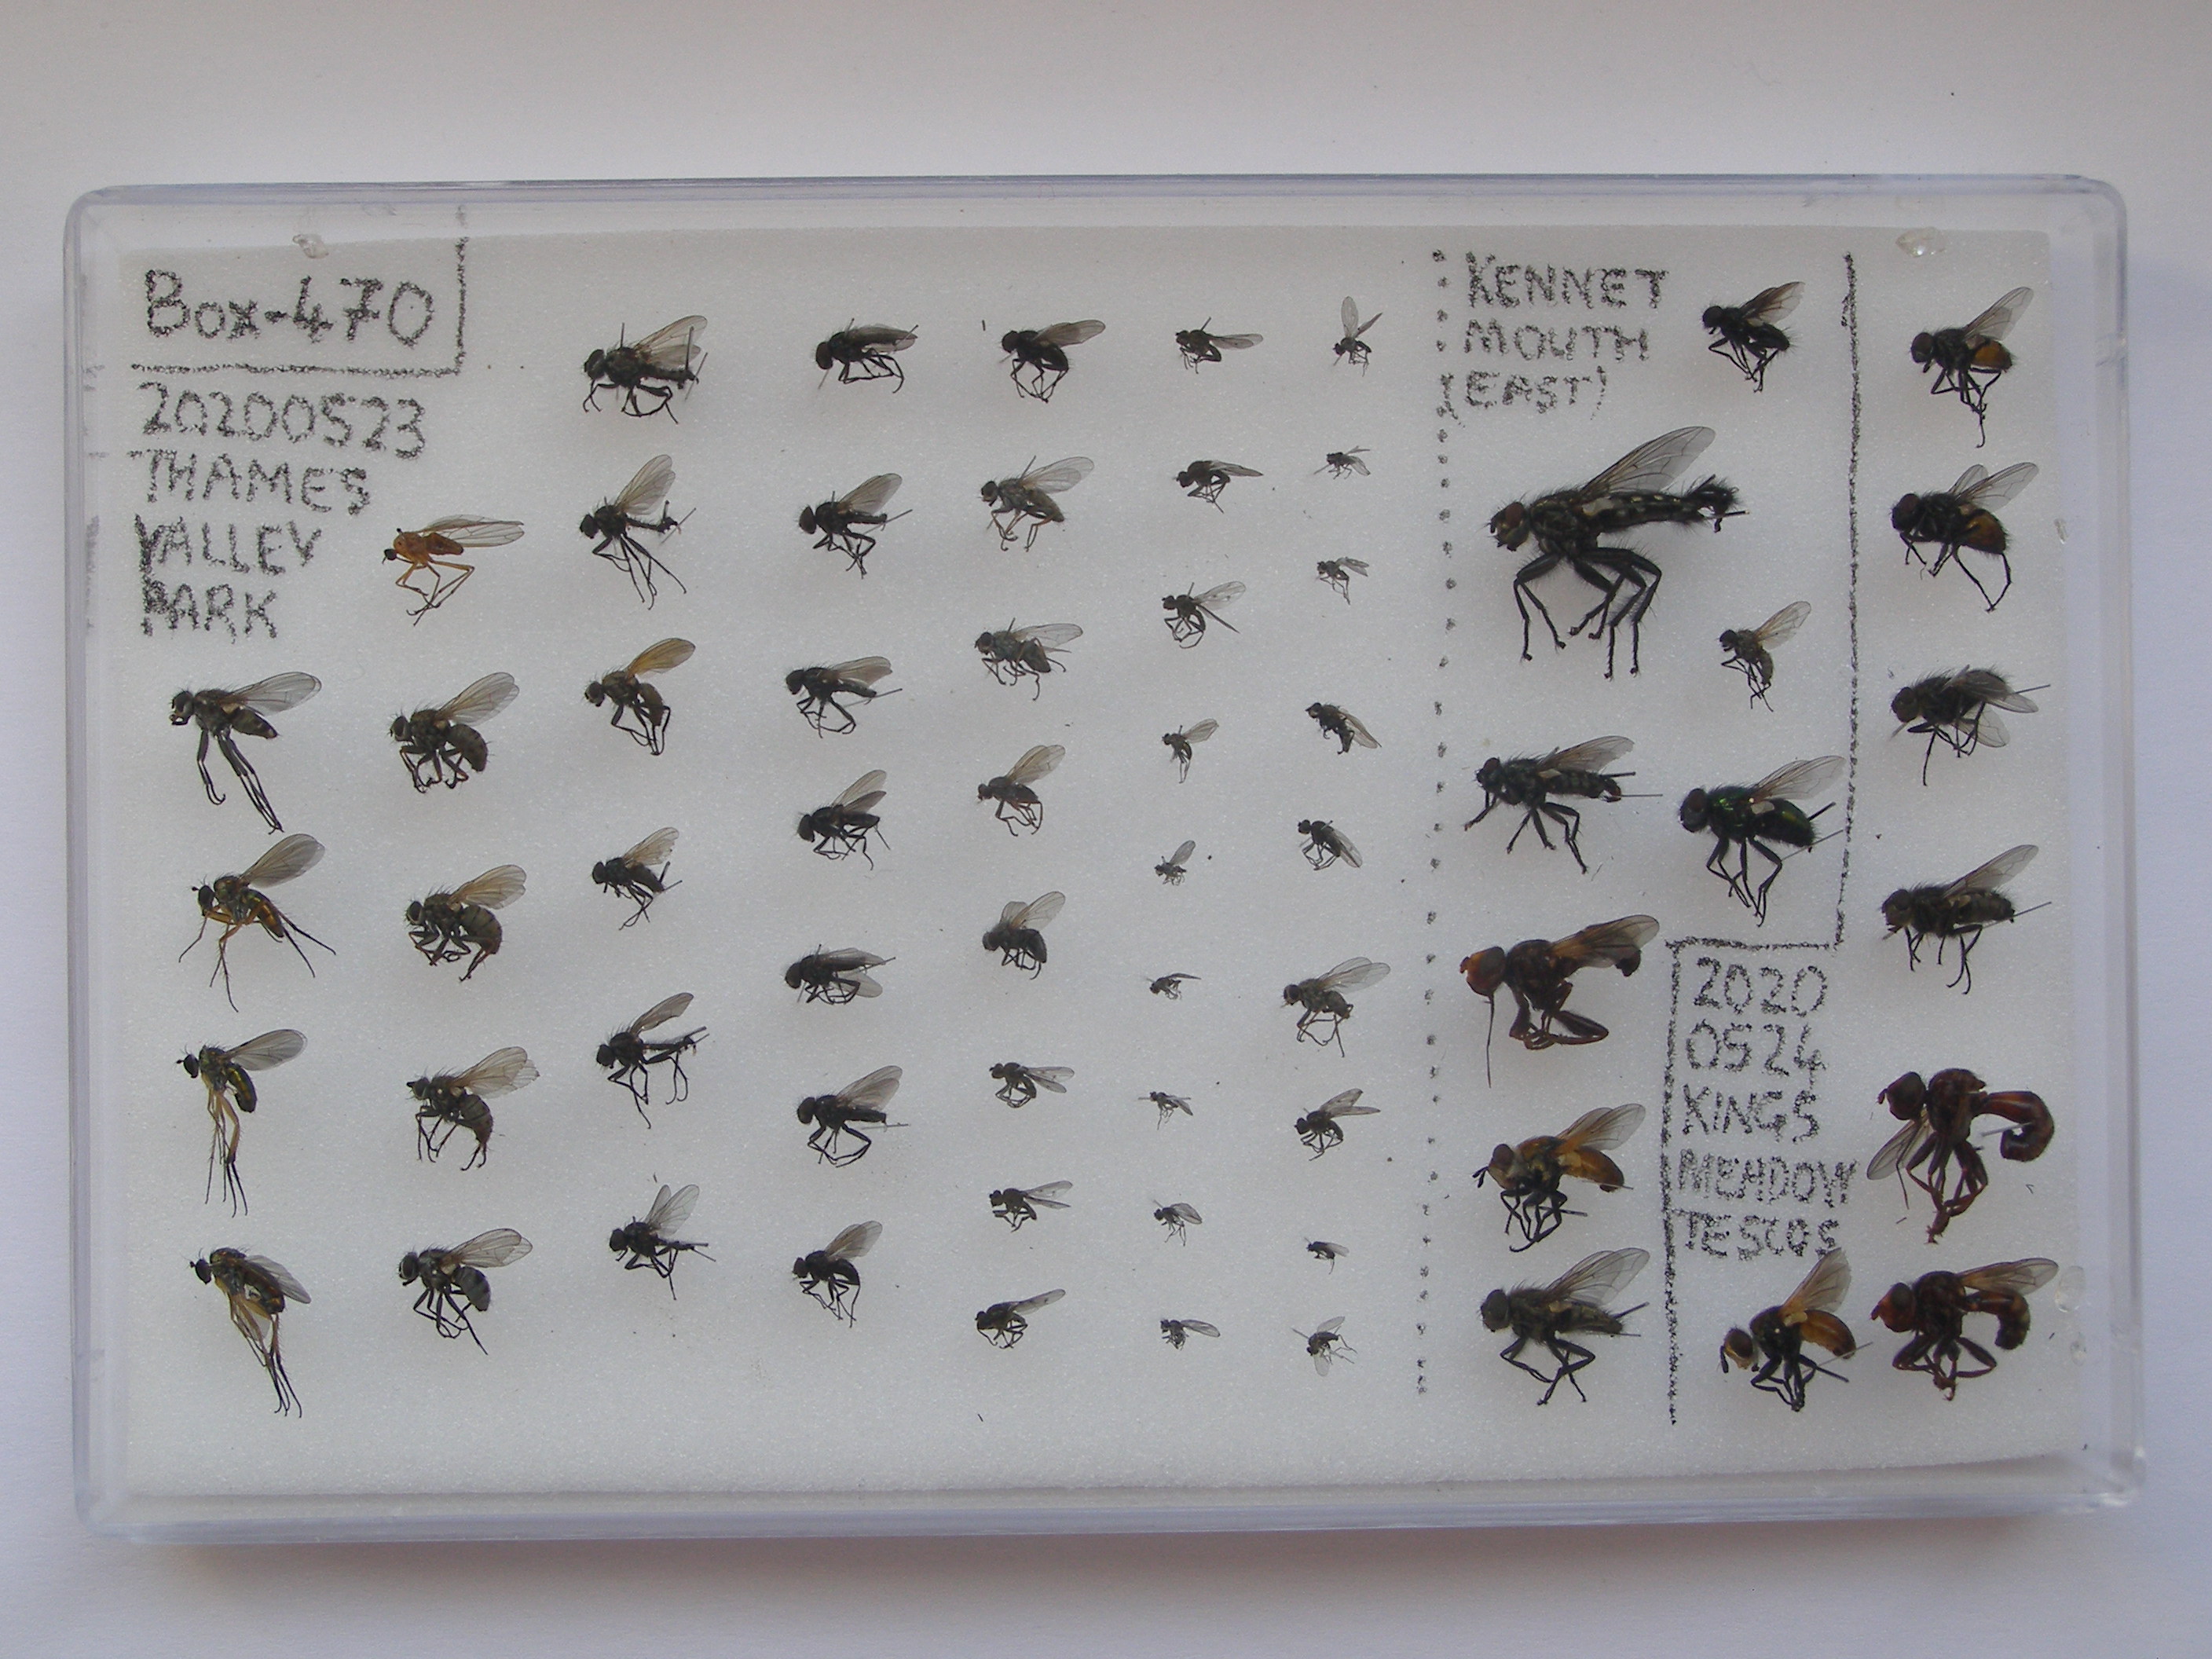 Box-470
20200523
THAMES
VALLEY
PARK
KENNET
MOUTH
(EAST)
2020
0524
KINGS
MEADOW
TESCOS